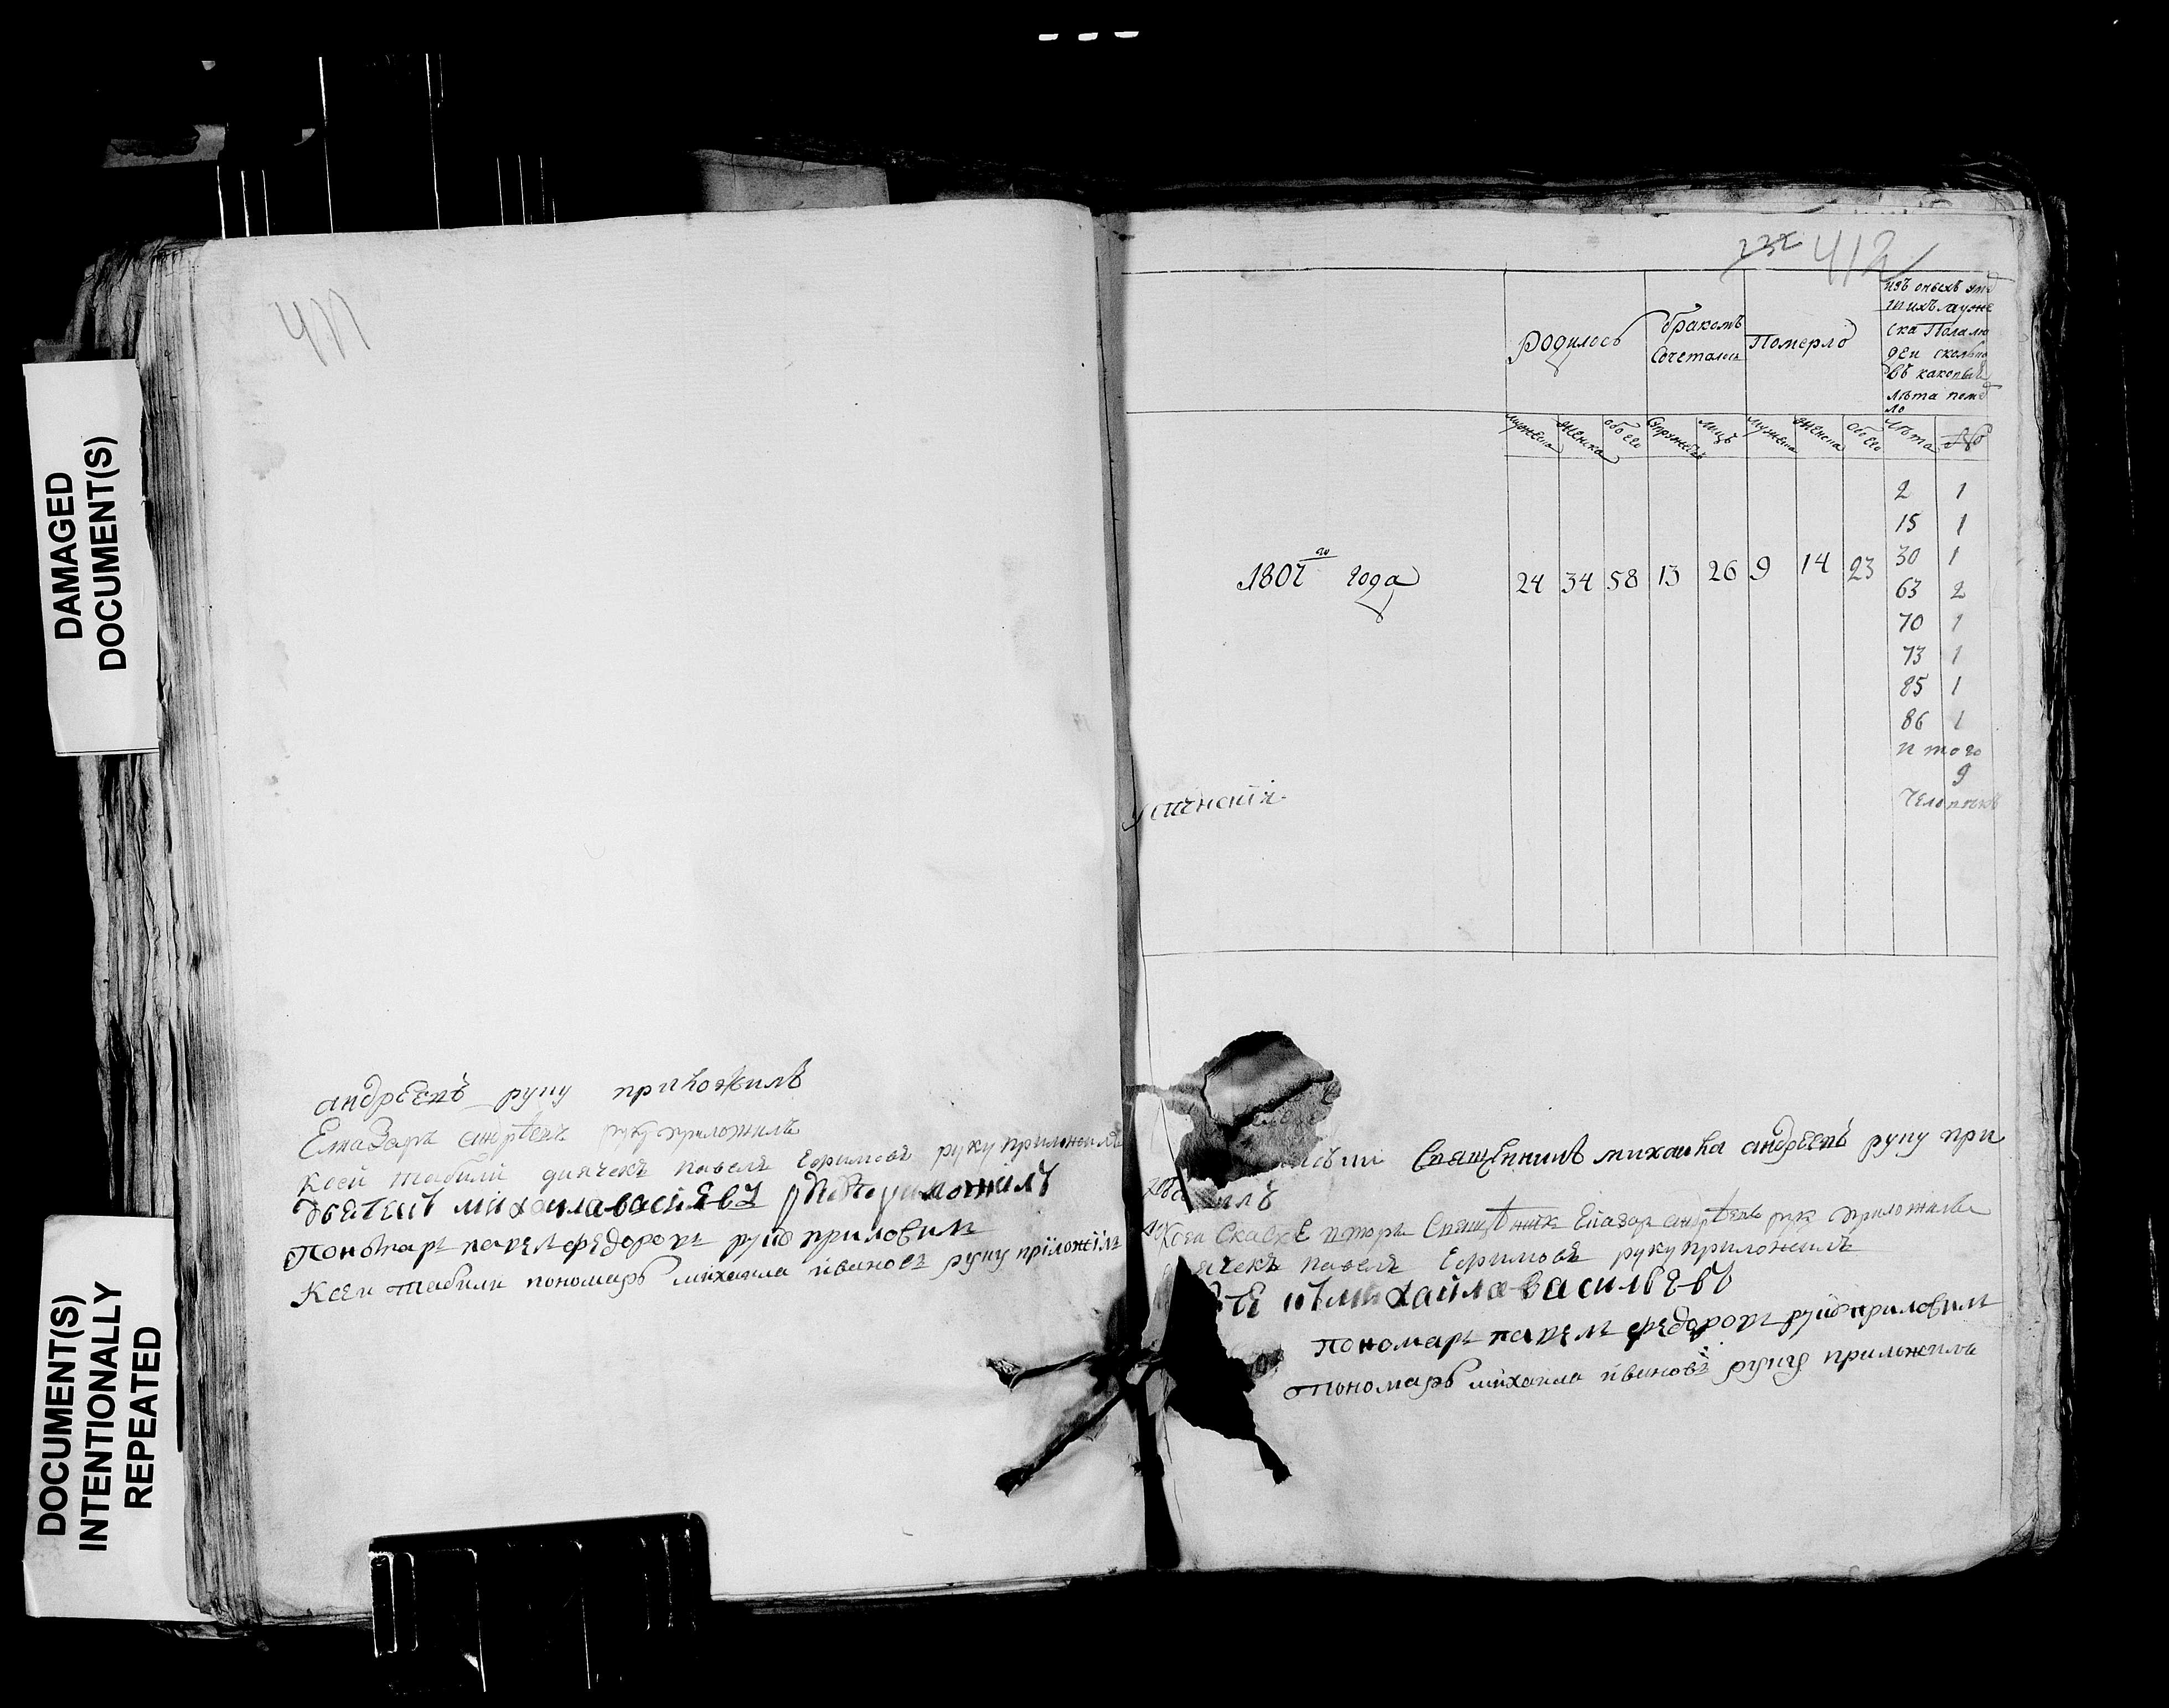 DAMAGED
DOCUMENT(S)
DOCUMENT(S)
INTENTIONALLY
REPEATED
411
андрЕевъ руку приложилъ
Елиазаръ андрѣевъ руку приложилъ
Ксей табили дьячекъ павелъ Ефимовъ руку приложилъ
михаила василЕвъ
Пономаръ павелъ федоровъ руку приложилъ
Ксеи табили пономарь михаила ивановъ руку прїложїлъ
232 412
Родилось
бракомъ
Сочеталось
Померло
изъ оныхъ
ска Пола лю
деи сколько
въ
лѣта
ло
мужеска женска обоего Супружествъ лицъ мужеска женска обоего лѣта №
1801 го года 24 34 58 13 26 9 14 23
2 1
15 1
30 1
63 2
70 1
73 1
85 1
86 1
и того
9
Человѣкъ
СвящЕнникъ михаила андрЕевъ руку при
илъ
СкаскЕ Священникъ Елиазаръ андрѣевъ руку приложилъ
ячекъ павелъ Ефимовъ руку приложилъ
михаила васильЕвъ
пономаръ павелъ фЕдоровъ руку приложилъ
пономарь михаила ивановъ руку приложилъ